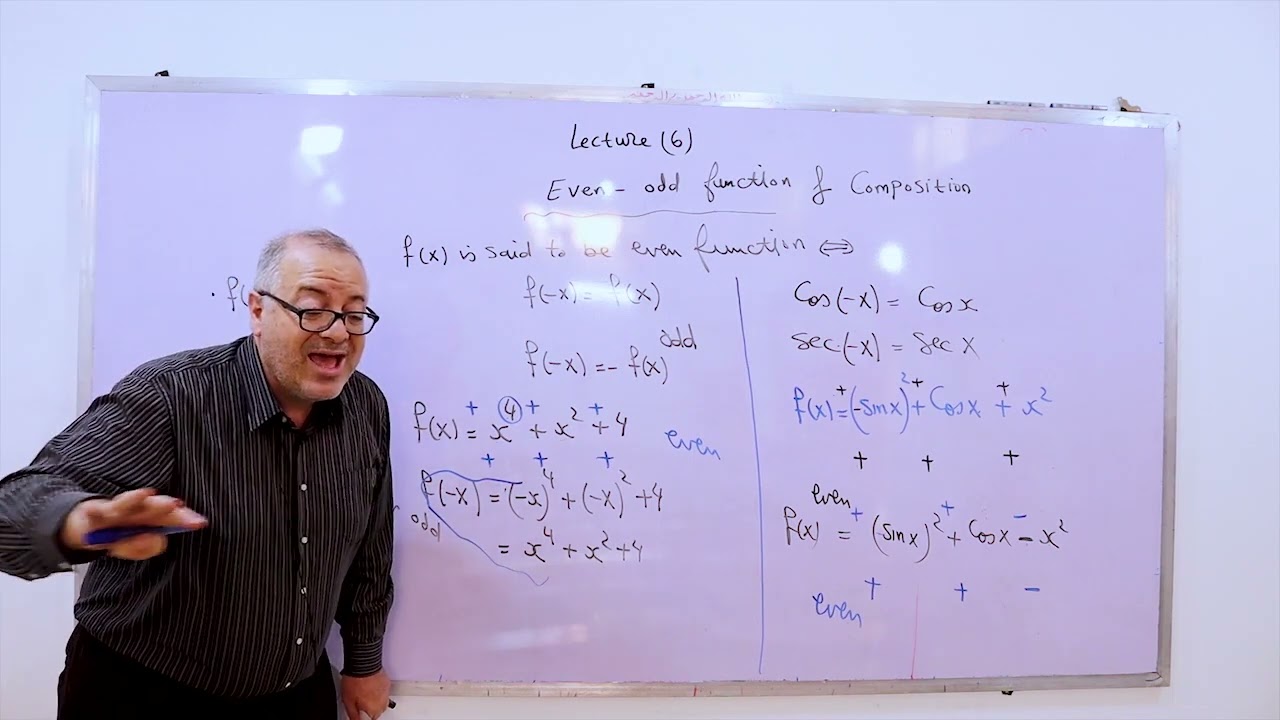 Lecture (6)
Even - odd function & Composition
f(x) is said to be even function ⇔
· f(
f(-x) = f(x)
odd
f(-x) = - f(x)
+ 4 + +
f(x) = x⁴ + x² + 4
even
+ + +
f(-x) = (-x)⁴ + (-x)² + 4
odd
= x⁴ + x² + 4
Cos(-x) = Cos x
sec(-x) = sec x
+ + +
f(x) = (-sin x)² + Cos x + x²
+ + +
even
+ + -
f(x) = (sin x)² + Cos x - x²
+ + -
even